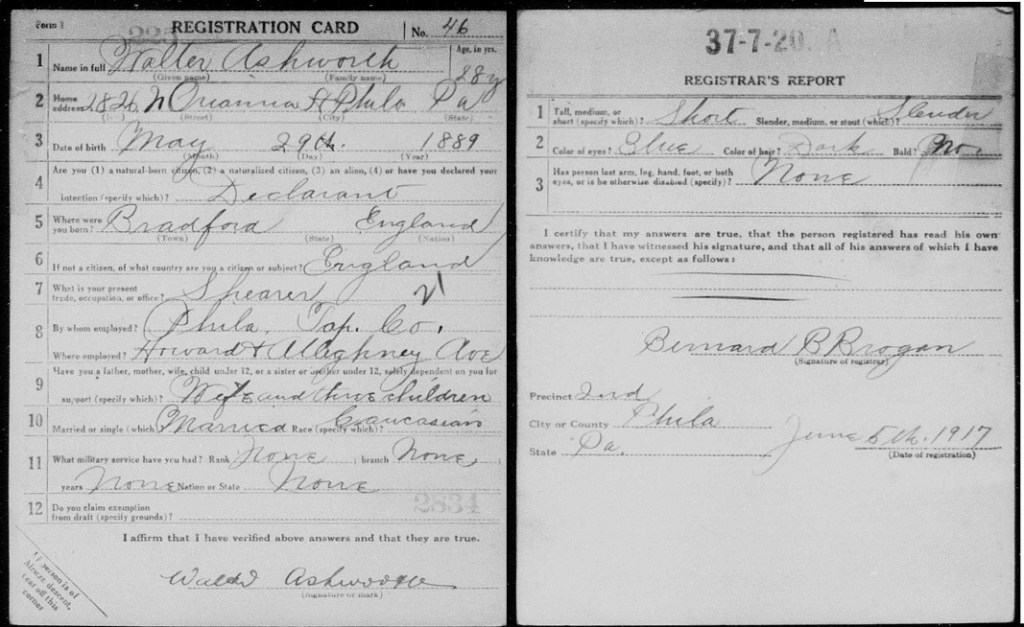 Form 1 REGISTRATION CARD No. 46
1 Name in full Walter Ashworth Age, in yrs.
(Given name) (Family name) 28 y
2 Home address 2826 N Orianna St Phila Pa
(No.) (Street) (City) (State)
3 Date of birth May 29th. 1889
(Month) (Day) (Year)
4 Are you (1) a natural-born citizen, (2) a naturalized citizen, (3) an alien, (4) or have you declared your
intention (specify which)? Declarant
5 Where were you born? Bradford England
(Town) (State) (Nation)
6 If not a citizen, of what country are you a citizen or subject? England
7 What is your present trade, occupation, or office? Shearer 21
8 By whom employed? Phila. Tap. Co.
Where employed? Howard & Alleghney Ave
9 Have you a father, mother, wife, child under 12, or a sister or brother under 12, solely dependent on you for
support (specify which)? Wife and three children
10 Married or single (which) Married Race (specify which)? Caucasian
11 What military service have you had? Rank None ; branch None ;
years None Nation or State None
2834
12 Do you claim exemption from draft (specify grounds)?
I affirm that I have verified above answers and that they are true.
Walter Ashworth
(Signature or mark)
If person is of
African descent,
tear off this
corner
37-7-20. A
REGISTRAR'S REPORT
1 Tall, medium, or short (specify which)? Short Slender, medium, or stout (which)? Slender
2 Color of eyes? Blue Color of hair? Dark Bald? No.
3 Has person lost arm, leg, hand, foot, or both eyes, or is he otherwise disabled (specify)? None
I certify that my answers are true, that the person registered has read his own
answers, that I have witnessed his signature, and that all of his answers of which I have
knowledge are true, except as follows:
Bernard B Brogan
(Signature of registrar)
Precinct 2nd
City or County Phila
State Pa. June 5th. 1917
(Date of registration)